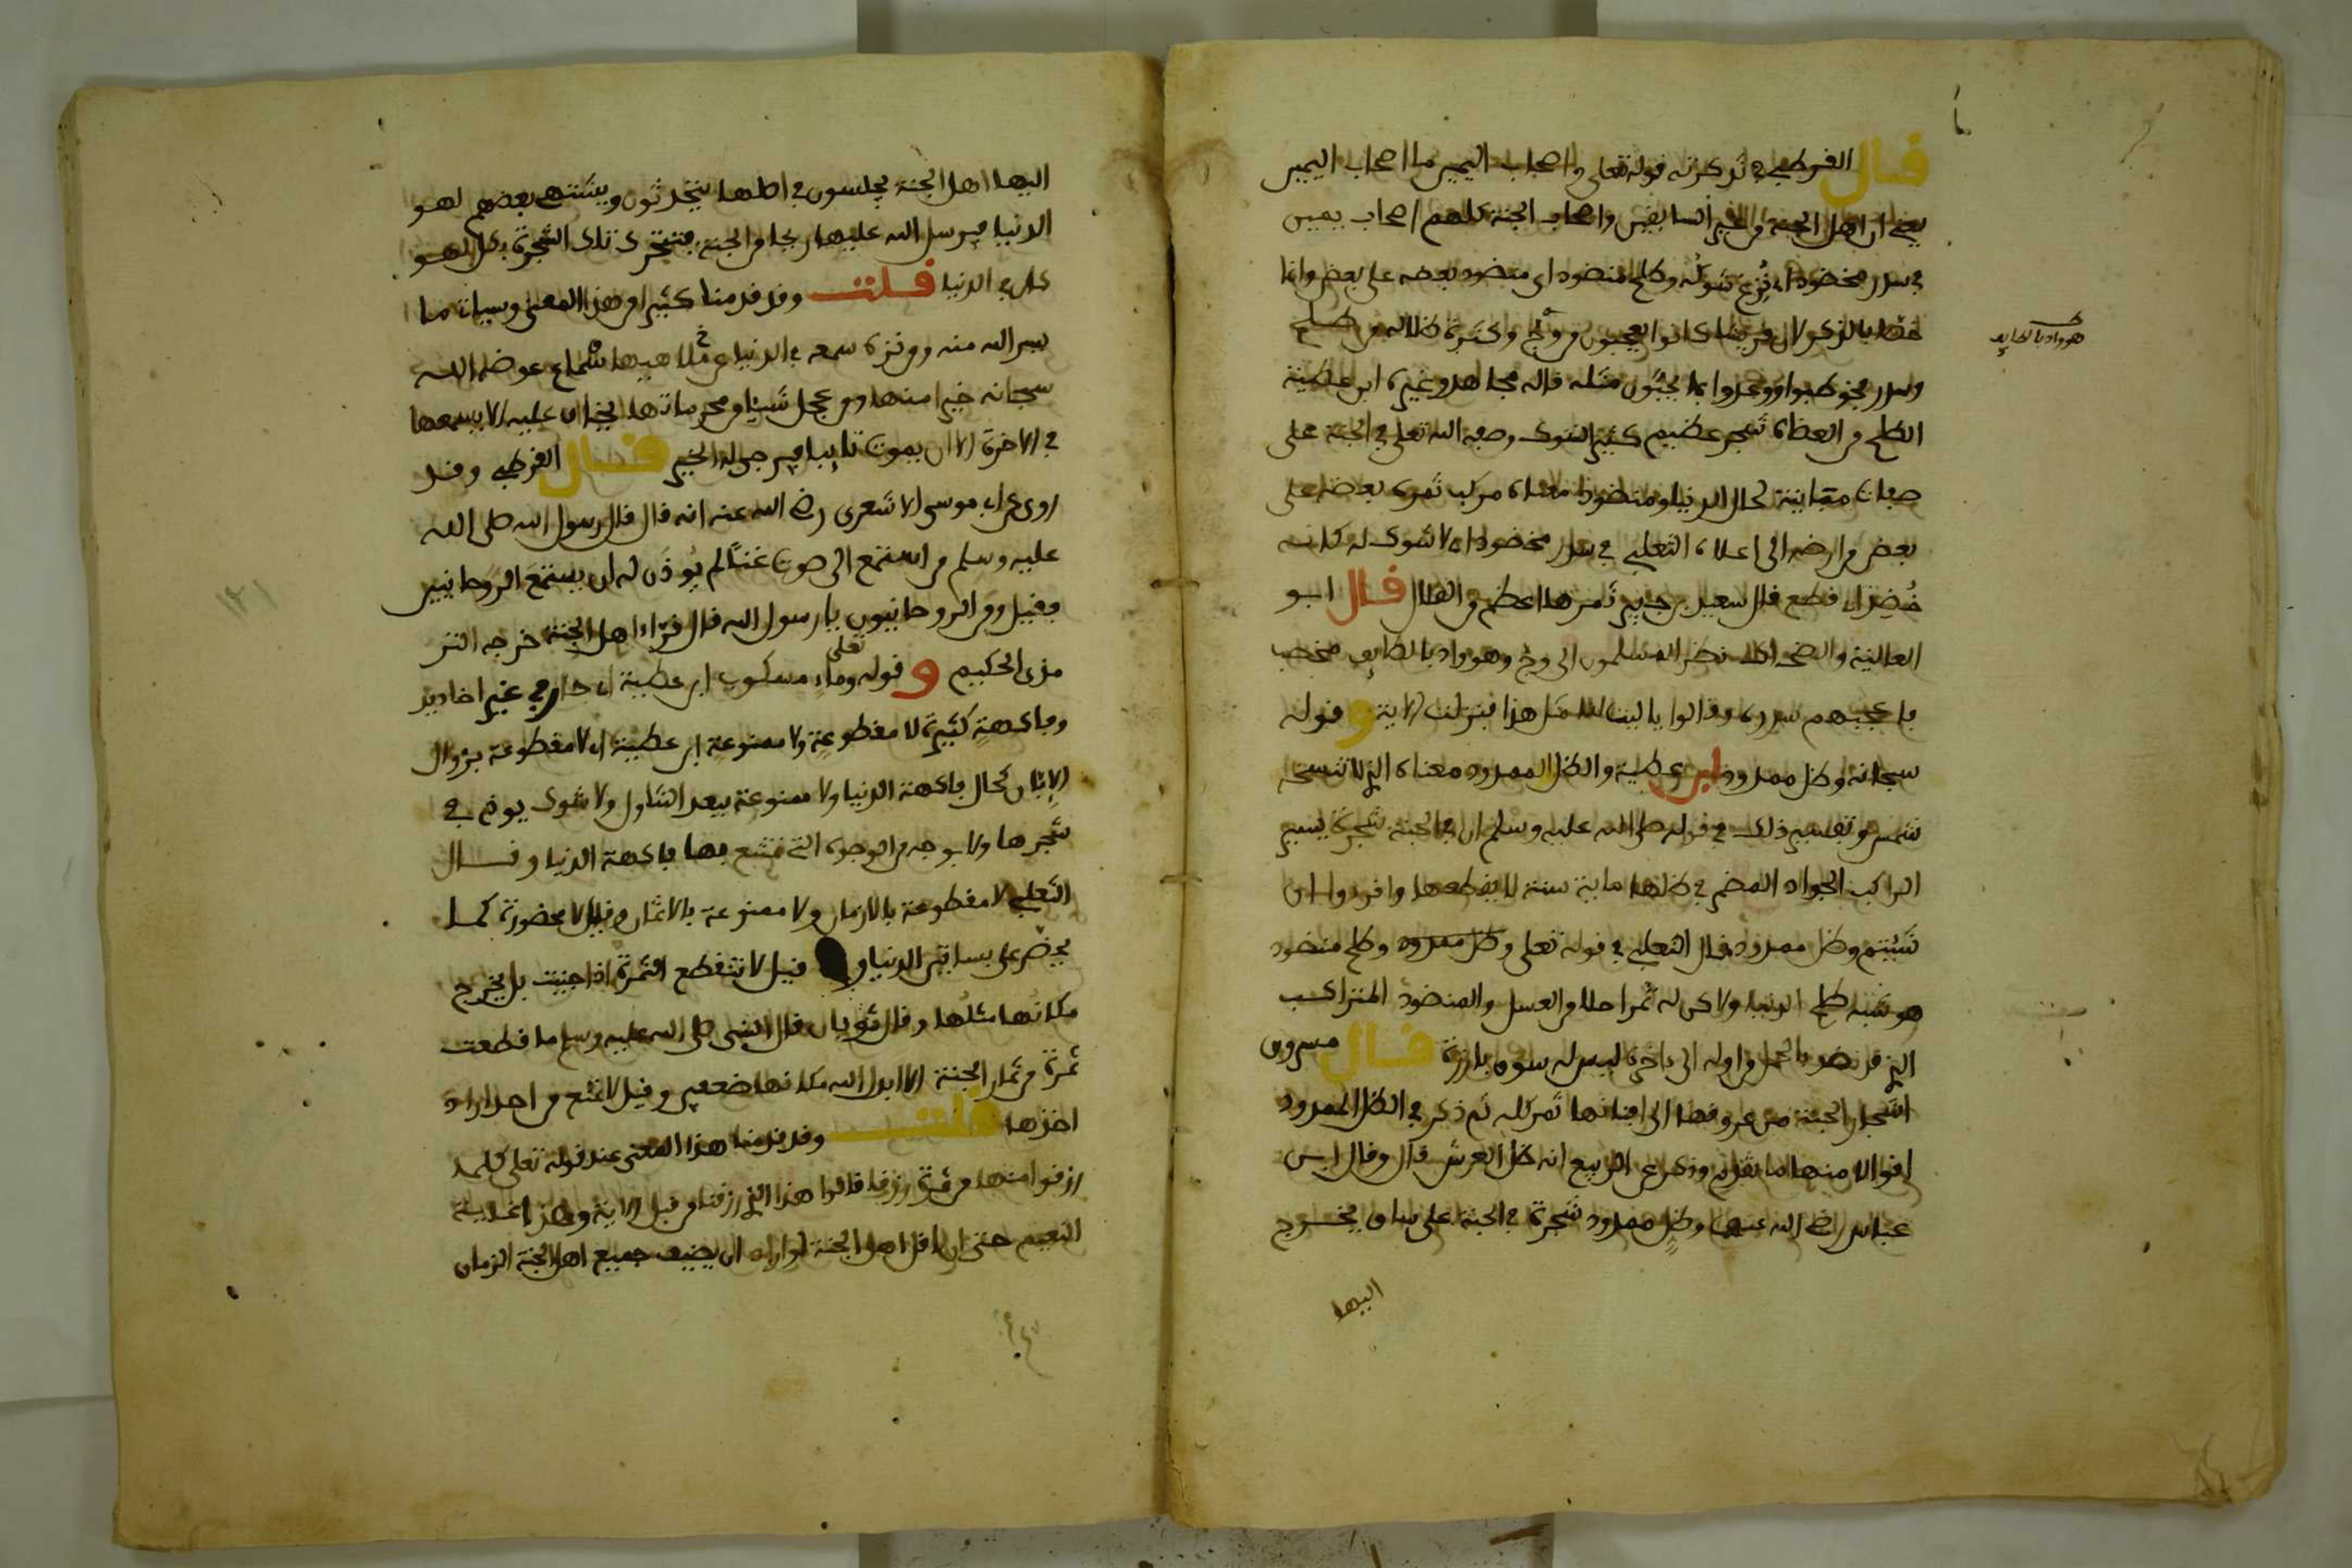 قال القرطبي في تذكرته قوله تعلى واصحاب اليمين ما اصحاب اليمين
يعني ان اهل الجنة من غير السابقين واصحاب الجنة كلهم اصحاب يمين
في سدر مخضود اي نزع شوكه وطلح منضود اي منضود بعضه على بعض وانما
خصا بالذكر لان قريشا كانوا يعجبون من وج وكثرة ظلاله من طلح
وسدر فخوطبوا ووعدوا بما يحبون مثله قاله مجاهد وغيره ابن عطية
الطلح من العضاه شجر عظيم كثير الشوك وصفه الله تعلى في الجنة على
صفات مباينة لحال الدنيا ومنضود معناه مركب ثمره بعضه على
بعض من ارضه الى اعلاه الثعلبي في سدر مخضود لا شوك له كانه
خضد اي قطع قال سعيد بن جبير ثمرها اعظم من القلال قال ابو
العالية والضحاك نظر المسلمون الى وج وهو واد بالطايف مخصب
فاعجبهم سدره وقالوا يا ليت لنا مثل هذا فنزلت الاية وقوله
سبحانه وظل ممدود ابن عطية والظل الممدود معناه الذي لا تنسخه
شمس وتفسير ذلك في قوله صلى الله عليه وسلم ان في الجنة شجرة يسير
الراكب الجواد المضمر في ظلها ماية سنة لا يقطعها واقرءوا ان
شيتم وظل ممدود قال الثعلبي في قوله تعلى وظل ممدود وطلح منضود
هو شبه طلح الدنيا ولاكن له ثمر احلا من العسل والمنضود المتراكب
الذي قد نضد بالحمل من اوله الى ءاخره ليس له سوق بارزة قال مسروق
اشجار الجنة من عروقها الى افنانها ثمر كله ثم ذكر في الظل الممدود
اقوالا منها ما تقدم وذكر عن الربيع انه ظل العرش قال وقال ابن
عباس رضي الله عنهما وظل ممدود شجرة في الجنة على ساق يخرج
اليها
هو واد بالطايف
اليها اهل الجنة يجلسون في اصلها يتحدثون ويشتهي بعضهم لهو
الدنيا فيرسل الله عليها ريحا من الجنة فتتحرك تلك الشجرة بكل لهو
كان في الدنيا قلت وقد قدمنا كثيرا من هذا المعنى وسياتي ما
يسر الله منه ومن نزه سمعه في الدنيا عن ملاهيها سماع عوضه الله
سبحانه خيرا منها ومن عجل شيئا من محرماتها يخاف عليه الا يسمعها
في الاخرة الا ان يموت تايبا فيرجى له الخير قال القرطبي وقد
روى عن ابي موسى الاشعري رضي الله عنه انه قال قال رسول الله صلى الله
عليه وسلم من استمع الى صوت غناء لم يوذن له ان يستمع الروحانيين
فقيل ومن الروحانيون يا رسول الله قال قراء اهل الجنة خرجه التر
مذي الحكيم وقوله تعلى وماء مسكوب ابن عطية اي جار في غير اخاديد
وفاكهة كثيرة لا مقطوعة ولا ممنوعة ابن عطية اي لا مقطوعة بزوال
الابان كحال فاكهة الدنيا ولا ممنوعة ببعد التناول ولا شوك يوذي في
شجرها ولا بوجه من الوجوه التي تمتنع بها فاكهة الدنيا وقال
الثعلبي لا مقطوعة بالازمان ولا ممنوعة بالاثمان وقيل لا محضورة كما
يحضر على بساتين الدنيا وقيل لا تنقطع الثمرة اذا جنيت بل يخرج
مكانها مثلها وقال ثوبان قال النبي صلى الله عليه وسلم ما قطعت
ثمرة من ثمار الجنة الا ابدل الله مكانها ضعفين وقيل لا تمتنع من احد اراد
اخذها قلت وقد قدمنا هذا المعنى عند قوله تعلى كلما
رزقوا منها من ثمرة رزقا قالوا هذا الذي رزقنا من قبل الاية وهذا غاية
النعيم حتى ان اقل اهل الجنة لو اراد ان يضيف جميع اهل الجنة الزمان
١٢١